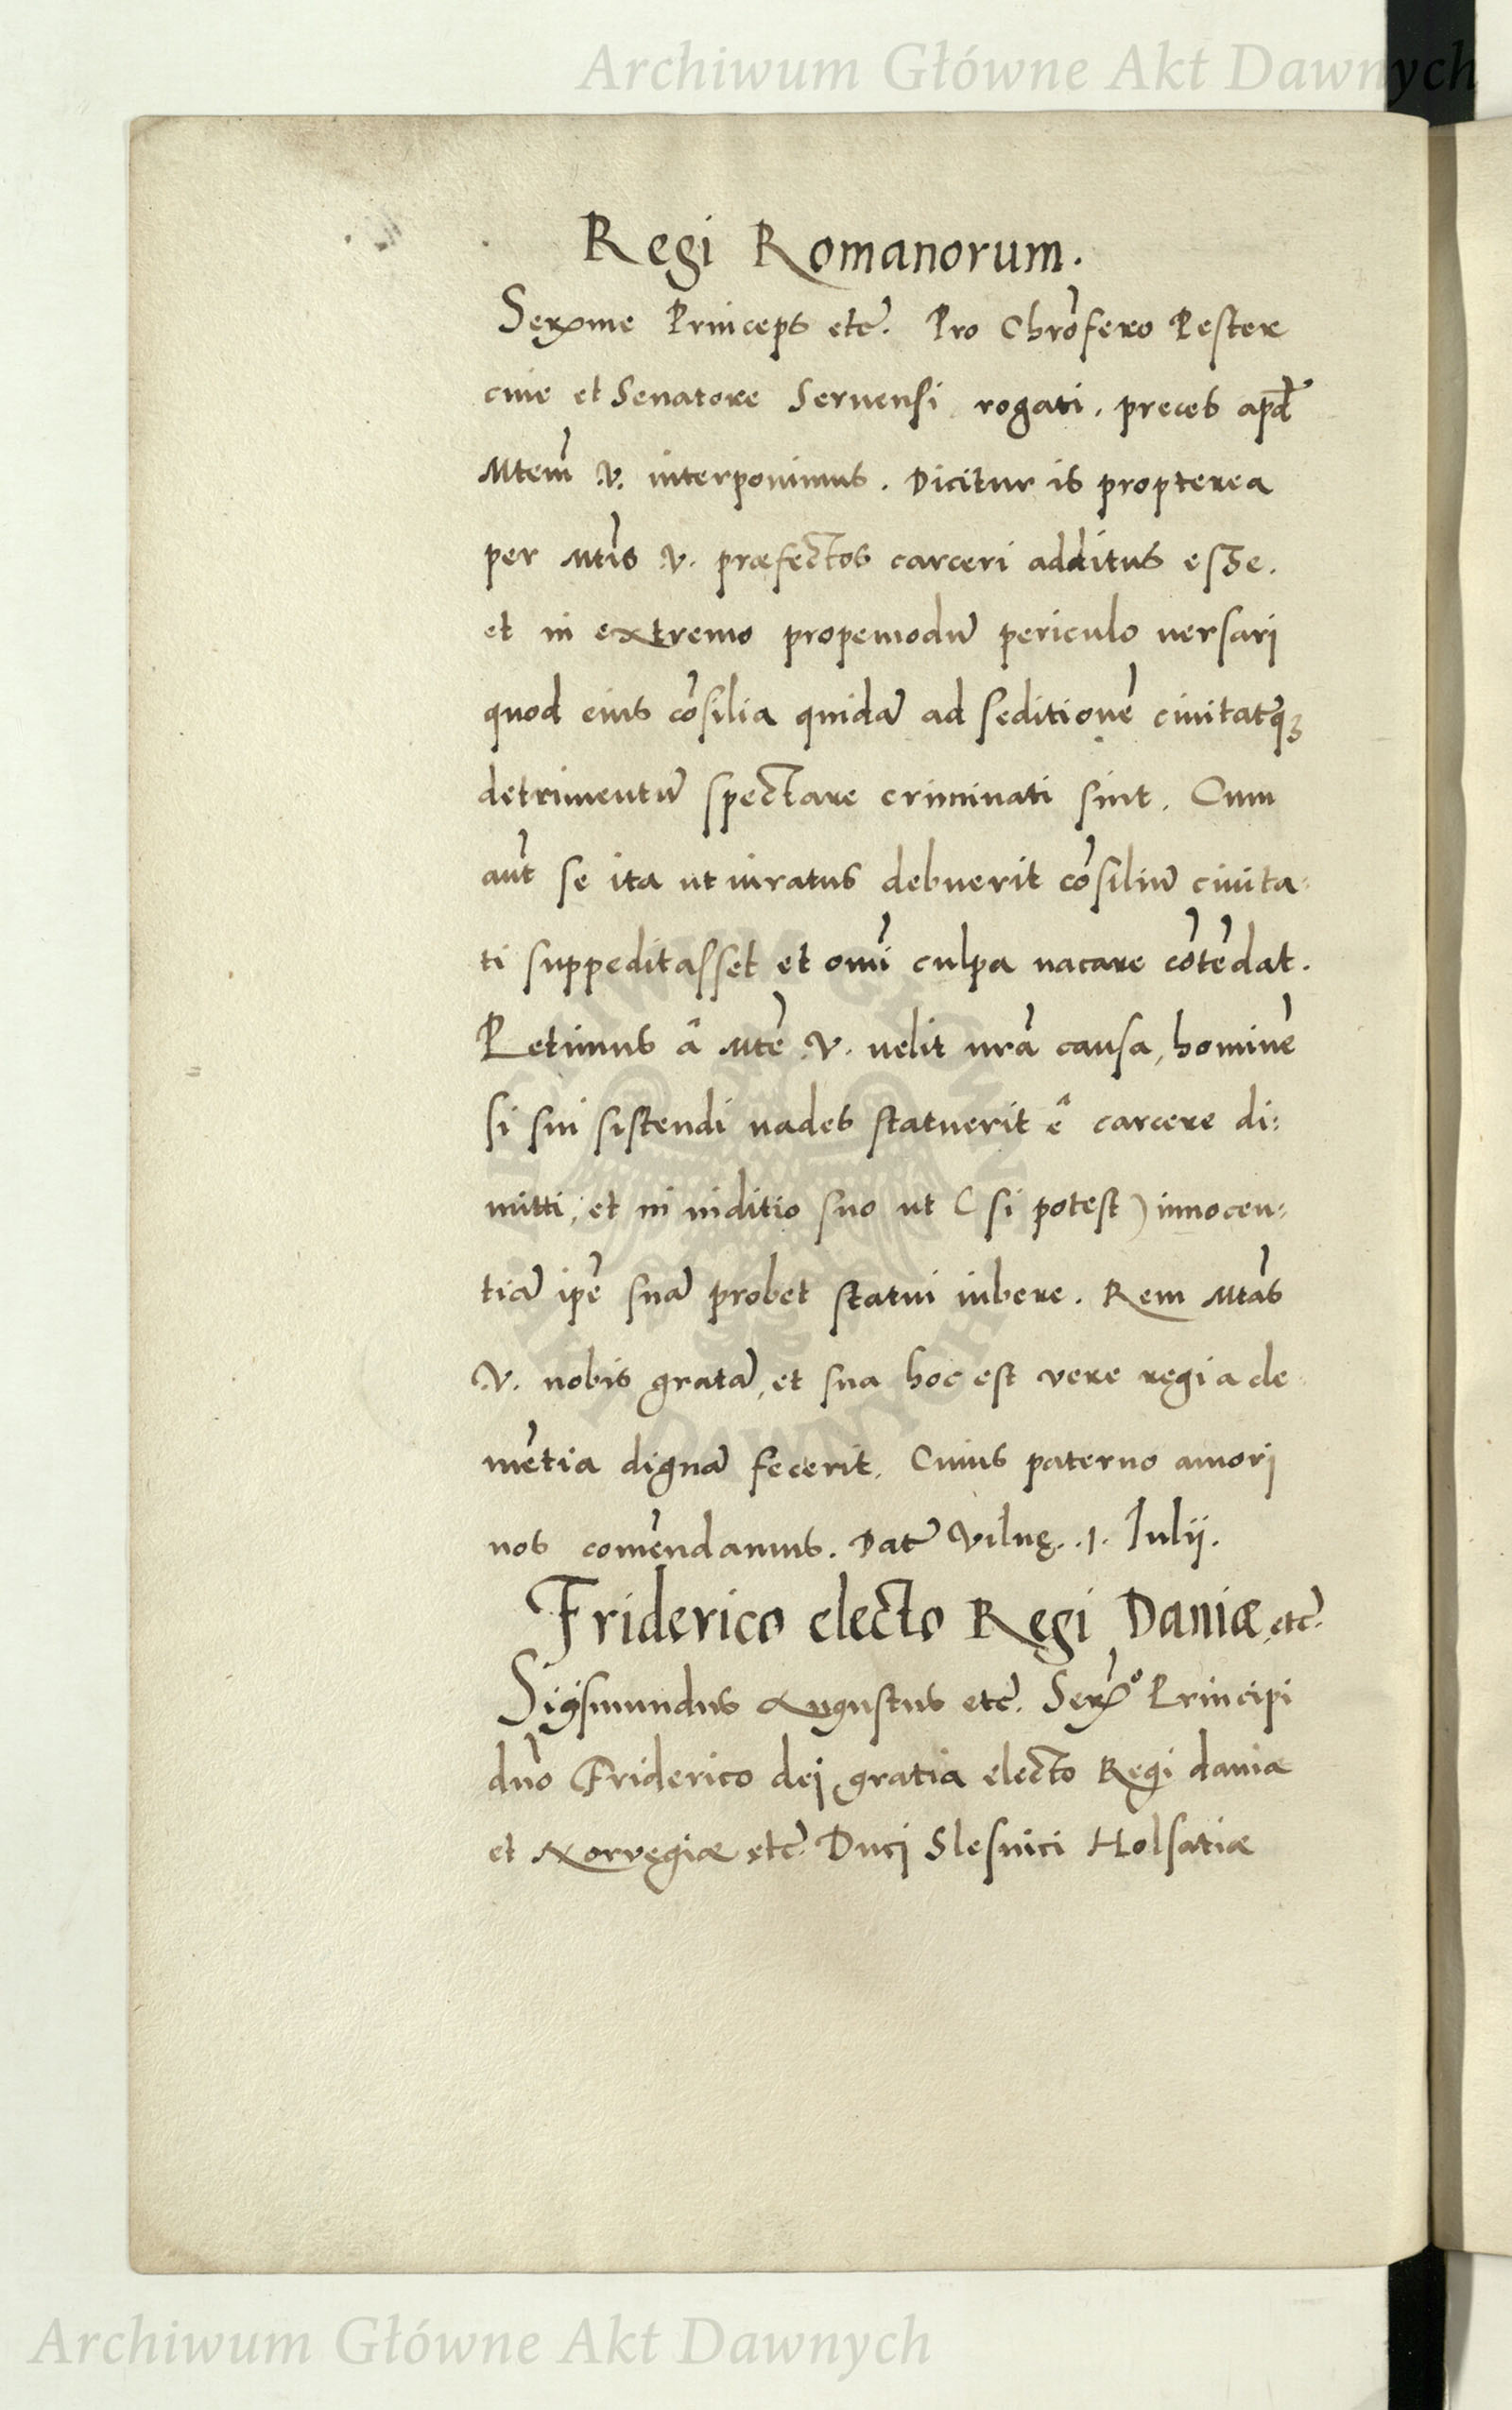 Archiwum Główne Akt Dawnych
Regi Romanorum.
Serxme Princeps etc̃. Pro Chrõfero Pester
ciue et Senatore Seruensi rogati, preces apd̃
Mtem̃ V. interponimus. Dicitur is propterea
per Mtis̃ V. præfectos carceri additus esse.
et in extremo propemodũ periculo uersari
quod eius cõsilia quidã ad seditionẽ ciuitatq̃ꝫ
detrimentũ spectare criminati sint. Cum
aũt se ita ut iuratus debuerit cõsiliũ ciuita:
ti suppeditasset et omĩ culpa uacare cõtẽdat.
Petimus â Mtẽ V. uelit nrã causa, hominẽ
si sui sistendi uades statuerit ê carcere di:
mitti, et in iuditio suo ut (si potest) innocen:
tiã ipẽ suã probet statui iubere. Rem Mtãs
V. nobis gratã, et sua hoc est vere regia cle
mẽtia dignã fecerit. Cuius paterno amori
nos comẽndamus. Dat̃ Vilnę. .1. Iulij.
Friderico electo Regi Daniæ etc̃.
Sigismundus Augustus etc̃. Serx̃º Principi
dnõ Friderico dej gratia electo Regi daniæ
et Norvegiæ etc̃ Ducj Slesuici Holsatiæ
Archiwum Główne Akt Dawnych